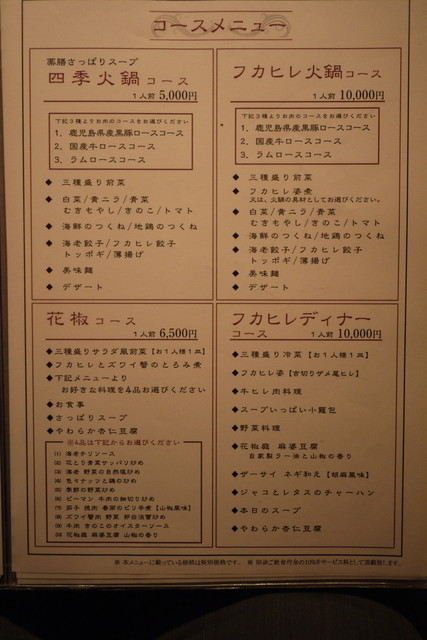 コースメニュー
薬膳さっぱりスープ
四季火鍋コース
1人前 5,000円
下記3種よりお肉のコースをお選びください
1. 鹿児島県産黒豚ロースコース
2. 国産牛ロースコース
3. ラムロースコース
◆ 三種盛り前菜
◆ 白菜/黄ニラ/青菜
むきもやし/きのこ/トマト
◆ 海鮮のつくね/地鶏のつくね
◆ 海老餃子/フカヒレ餃子
トッポギ/薄揚げ
◆ 美味麺
◆ デザート
フカヒレ火鍋コース
1人前 10,000円
下記3種よりお肉のコースをお選びください
1. 鹿児島県産黒豚ロースコース
2. 国産牛ロースコース
3. ラムロースコース
◆ 三種盛り前菜
◆ フカヒレ姿煮
又は、火鍋の具材としてお選びください。
◆ 白菜/黄ニラ/青菜
むきもやし/きのこ/トマト
◆ 海鮮のつくね/地鶏のつくね
◆ 海老餃子/フカヒレ餃子
トッポギ/薄揚げ
◆ 美味麺
◆ デザート
花椒コース
1人前 6,500円
◆三種盛りサラダ風前菜【お1人様1皿】
◆フカヒレとズワイ蟹のとろみ煮
◆下記メニューより
お好きな料理を4品お選びください
◆お食事
◆さっぱりスープ
◆やわらか杏仁豆腐
※4品は下記からお選びください
(1) 海老チリソース
(2) 花とり青菜サッパリ炒め
(3) 海老 野菜の自然塩炒め
(4) 色々ナッツと鶏の炒め
(5) 季節の野菜炒め
(6) ピーマン 牛肉の細切り炒め
(7) 茄子 挽肉 春雨のピリ辛煮【山椒風味】
(8) ズワイ蟹肉 野菜 卵白淡雪炒め
(9) 牛肉 きのこのオイスターソース
(10) 花椒庭 麻婆豆腐 山椒の香り
フカヒレディナー
コース
1人前 10,000円
◆三種盛り冷菜【お1人様1皿】
◆フカヒレ姿【吉切りザメ尾ヒレ】
◆牛ヒレ肉料理
◆スープいっぱい小籠包
◆野菜料理
◆花椒庭 麻婆豆腐
自家製ラー油と山椒の香り
◆ザーサイ ネギ和え【胡麻風味】
◆ジャコとレタスのチャーハン
◆本日のスープ
◆やわらか杏仁豆腐
※ 本メニューに載っている価格は税別価格です。 ※ 別途ご飲食代金の10%をサービス料として頂戴致します。